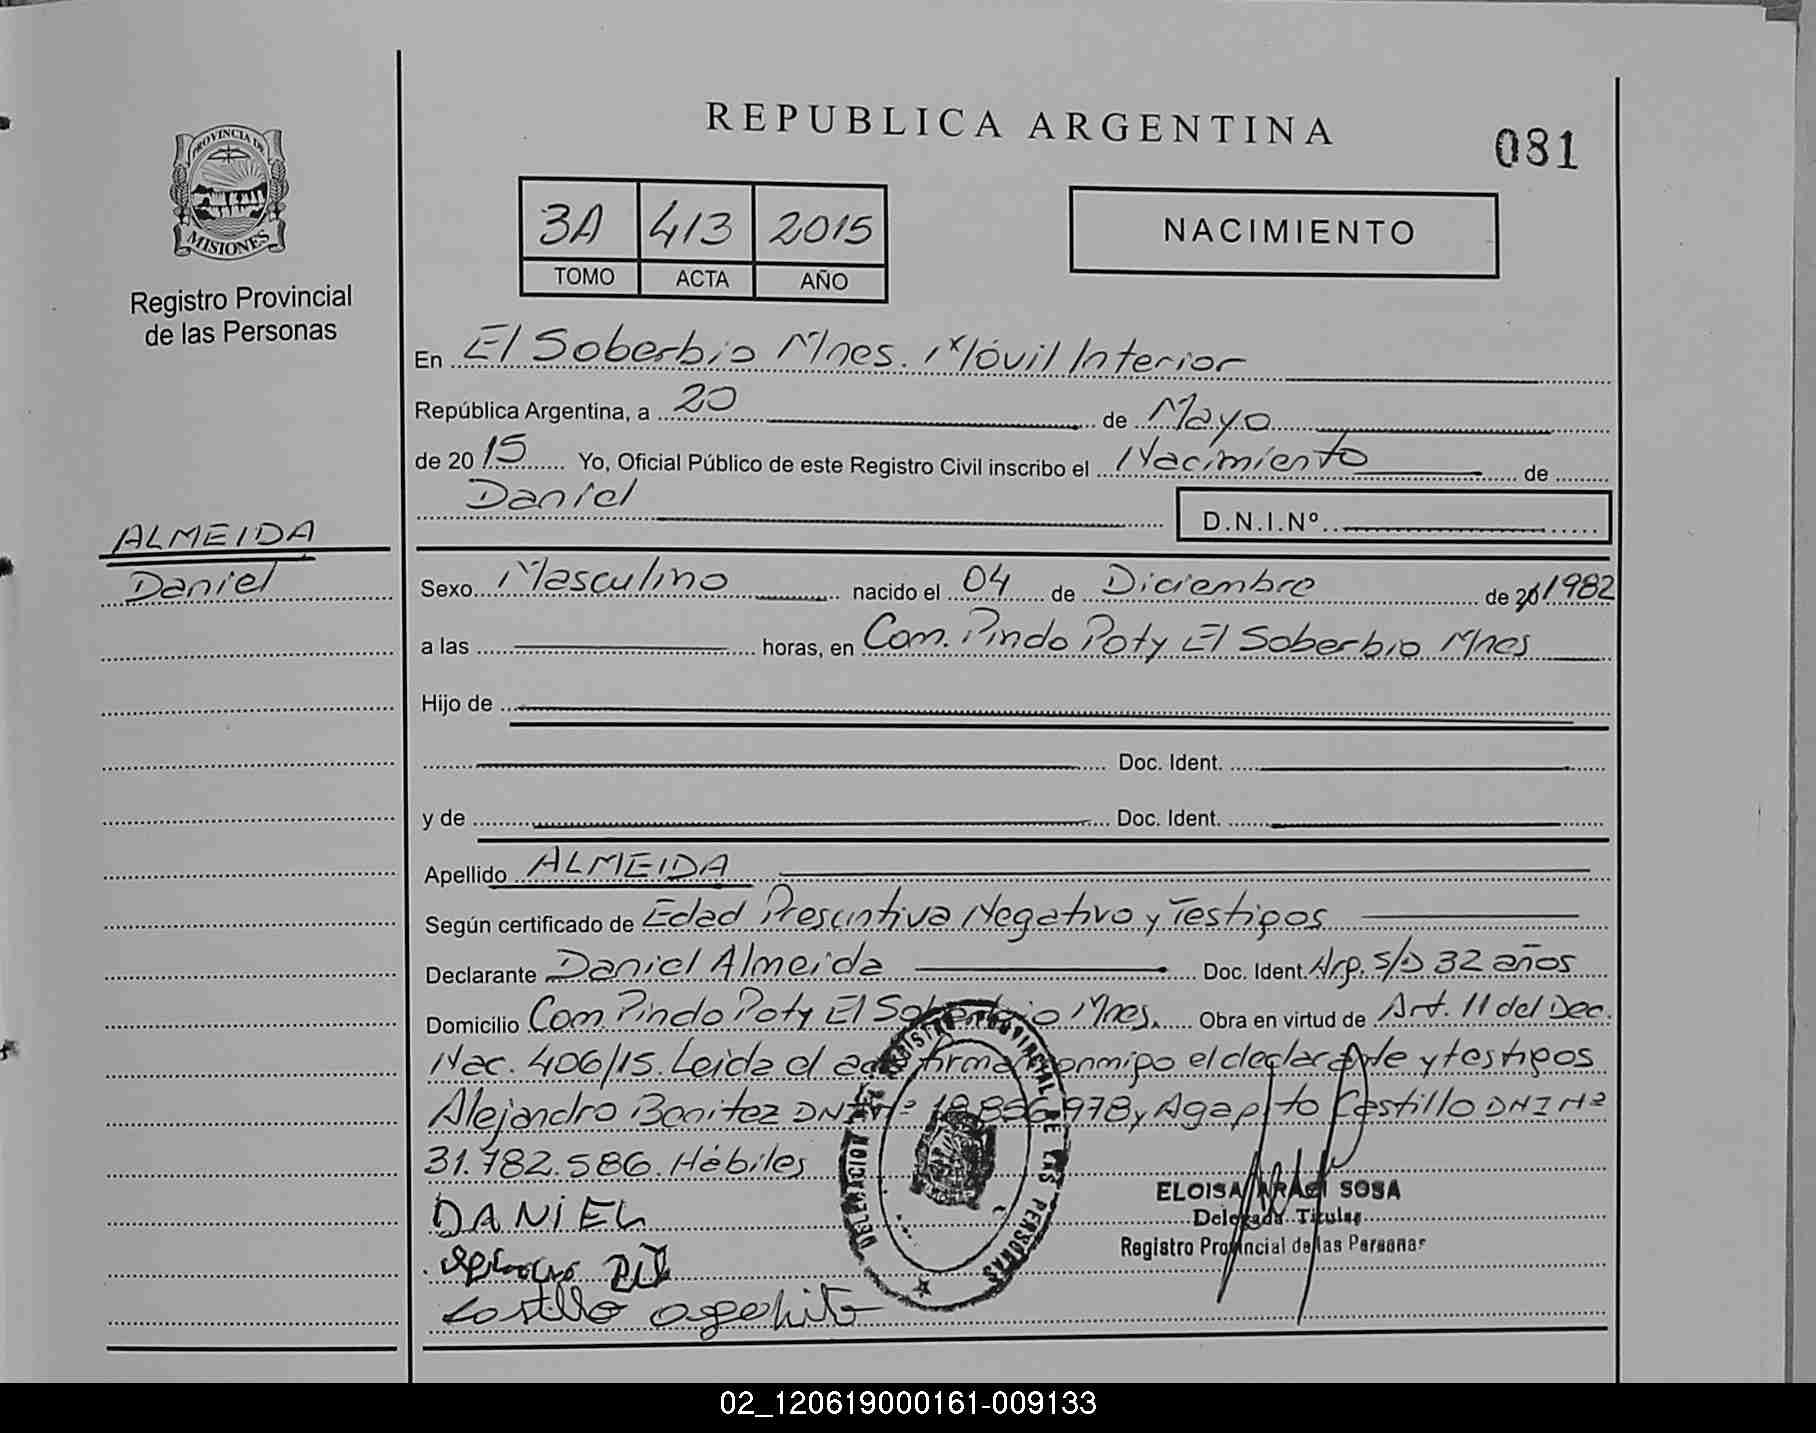 REPUBLICA ARGENTINA
081
PROVINCIA DE
MISIONES
Registro Provincial
de las Personas
3A 413 2015
TOMO ACTA AÑO
NACIMIENTO
En El Soberbio Mnes. Móvil Interior
República Argentina, a 20 de Mayo
de 20 15 Yo, Oficial Público de este Registro Civil inscribo el Nacimiento de
Daniel D.N.I.Nº
ALMEIDA
Daniel
Sexo Masculino nacido el 04 de Diciembre de 20 1982
a las horas, en Com. Pindo Poty El Soberbio Mnes
Hijo de
Doc. Ident.
y de Doc. Ident.
Apellido ALMEIDA
Según certificado de Edad Presuntiva Negativo y Testigos
Declarante Daniel Almeida Doc. Ident. Arg. S/D 32 años
Domicilio Com Pindo Poty El Soberbio Mnes. Obra en virtud de Art. 11 del Dec.
Nac. 406/15. Leida el acta firman conmigo el declarante y testigos
Alejandro Benitez DNI Nº 18.856.978 y Agapito Castillo DNI Nº
31.782.586. Hábiles
DELEGACION DEL REGISTRO PROVINCIAL DE LAS PERSONAS
DANIEL
Castillo agapito
ELOISA ARACI SOSA
Delegada Titular
Registro Provincial de las Personas
02_120619000161-009133